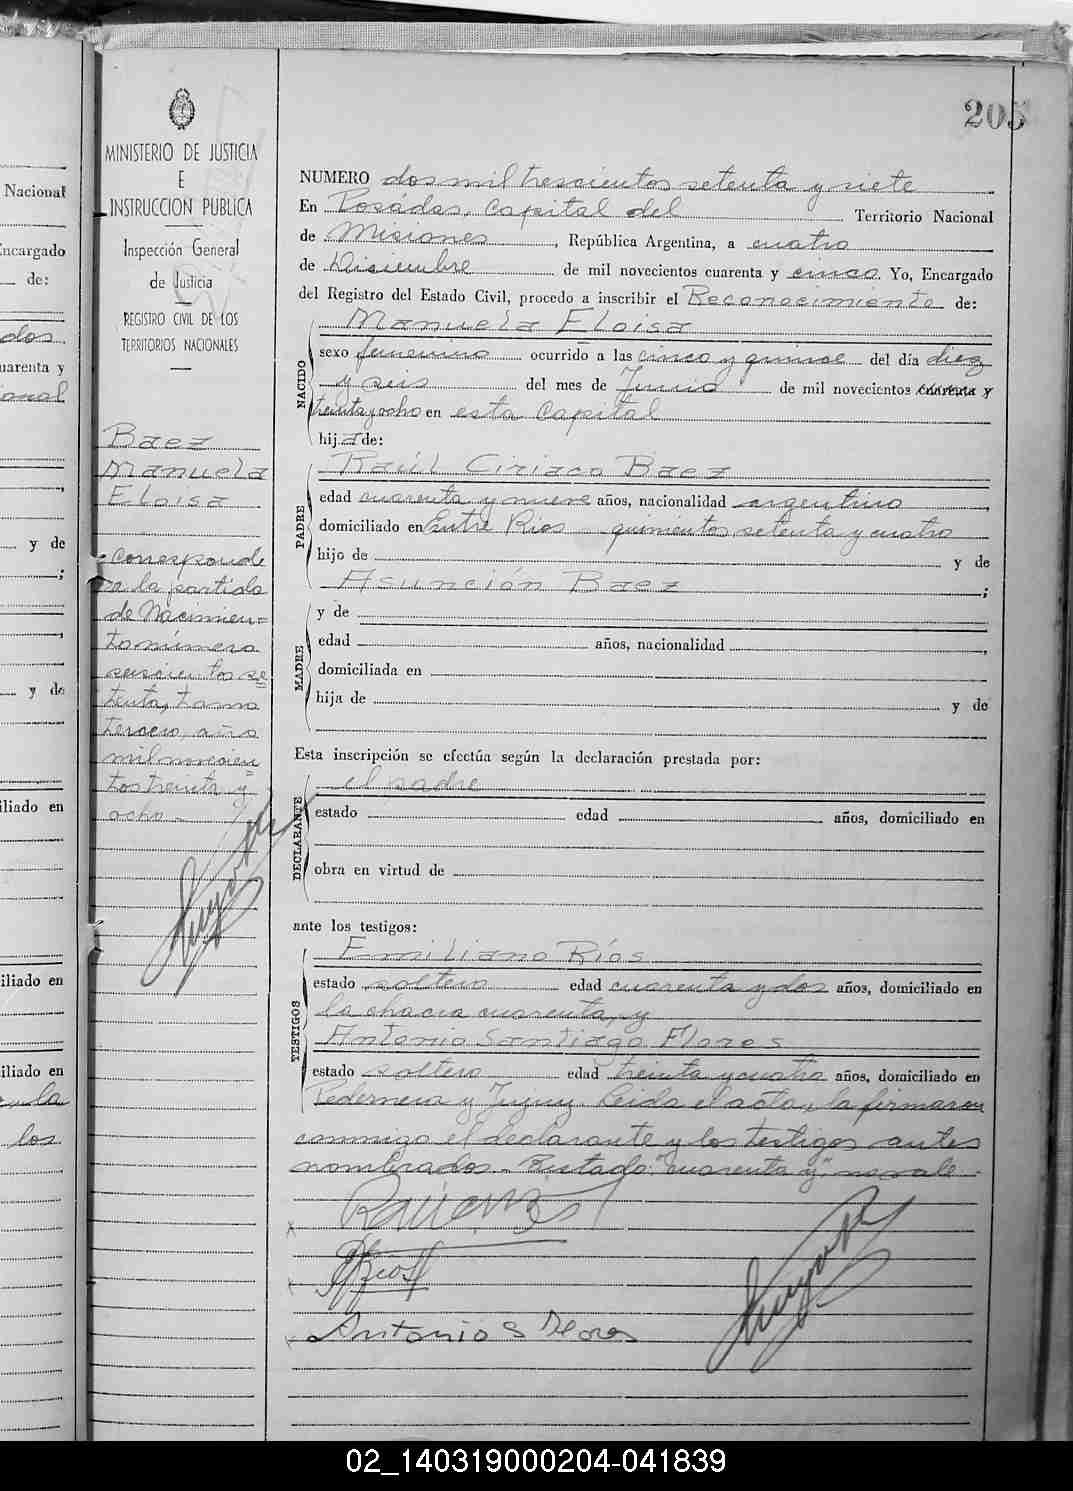 205
MINISTERIO DE JUSTICIA
E
INSTRUCCION PUBLICA
Inspección General
de Justicia
REGISTRO CIVIL DE LOS
TERRITORIOS NACIONALES
Baez
Manuela
Eloisa
Corresponde
a la partida
de Nacimien=
to número
seiscientos se
tenta, tomo
tercero, año
mil novecien
tos treinta y
ocho.-
NUMERO dos mil trescientos setenta y siete
En Posadas, Capital del Territorio Nacional
de Misiones, República Argentina, a cuatro
de Diciembre de mil novecientos cuarenta y cinco. Yo, Encargado
del Registro del Estado Civil, procedo a inscribir el Reconocimiento de:
Manuela Eloisa
NACIDO
sexo femenino ocurrido a las cinco y quince del día diez
y seis del mes de Junio de mil novecientos cuarenta y
treinta y ocho en esta Capital
hija de:
Raúl Ciriaco Baez
PADRE
edad cuarenta y nueve años, nacionalidad argentino,
domiciliado en Entre Rios quinientos setenta y cuatro
hijo de y de
Asunción Baez;
MADRE
y de
edad años, nacionalidad,
domiciliada en
hija de y de
Esta inscripción se efectúa según la declaración prestada por:
el padre
DECLARANTE
estado edad años, domiciliado en
obra en virtud de
ante los testigos:
Emiliano Ríos
TESTIGOS
estado soltero edad cuarenta y dos años, domiciliado en
la chacra cuarenta, y
Antonio Santiago Flores
estado soltero edad treinta y cuatro años, domiciliado en
Pedernera y Jujuy. Leida el acta, la firmaron
conmigo el declarante y los testigos antes
nombrados.- Testado: "cuarenta y", no vale
Antonio S Flores
Nacional
Encargado
de:
dos
uarenta y
ional
y de
;
,
y de
iliado en
iliado en
iliado en
la
los
02_140319000204-041839